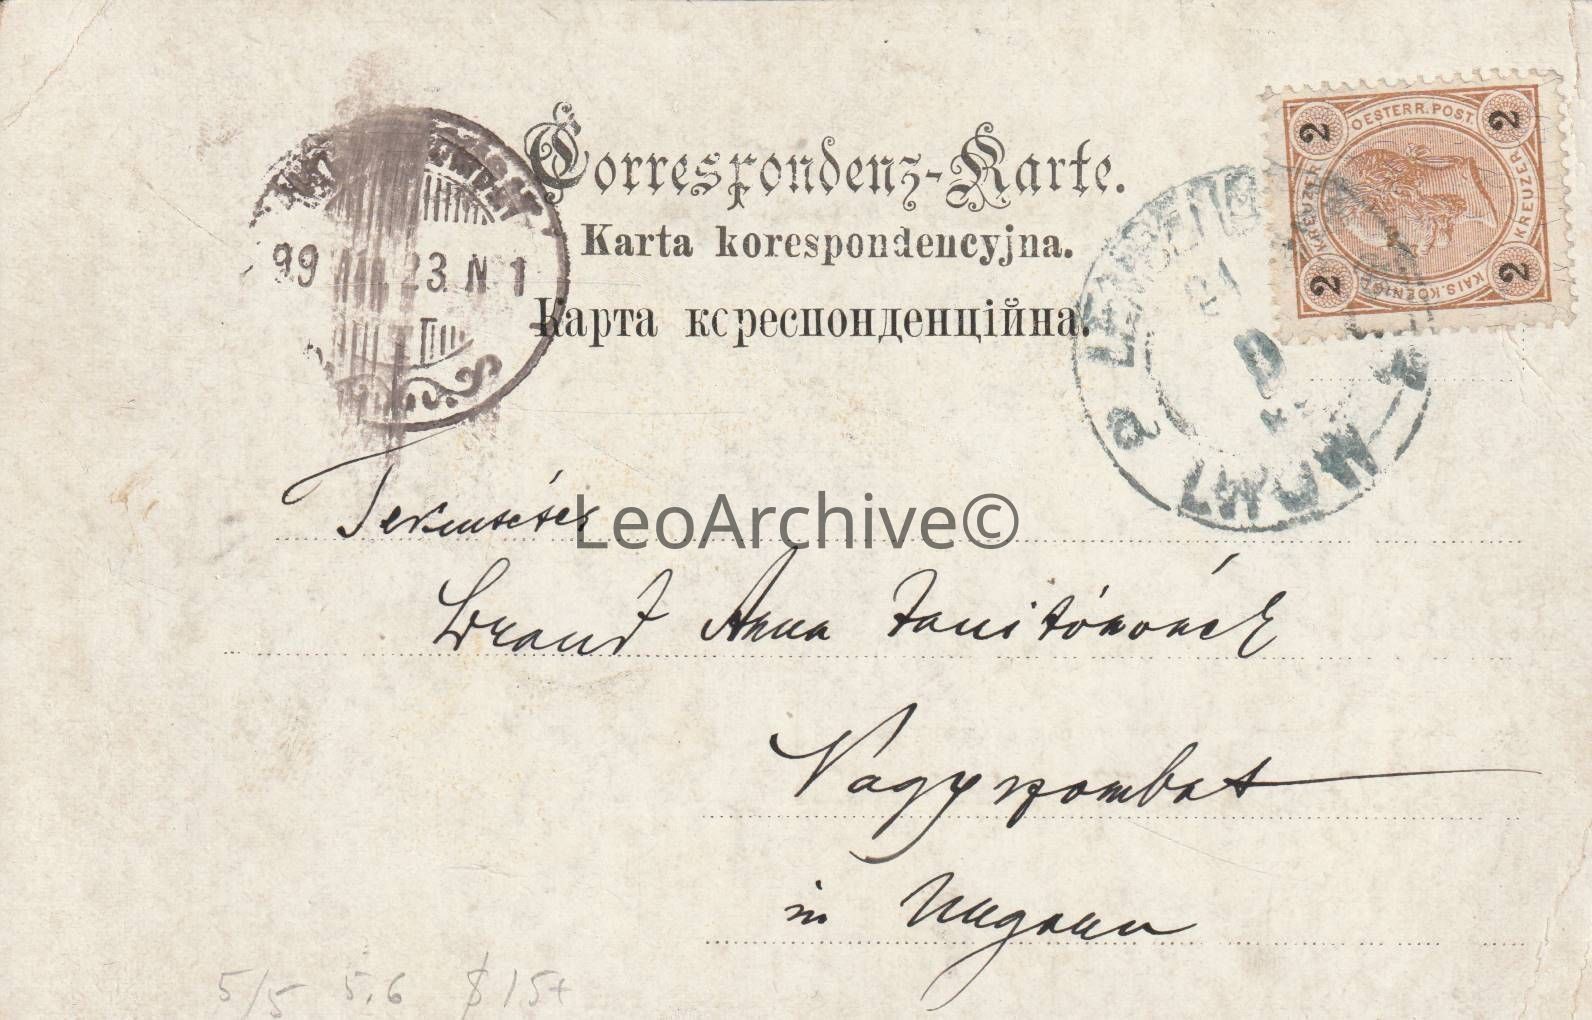 Correspondenz-Karte.
Karta korespondencyjna.
Карта кореспонденційна.
OESTERR. POST.
KREUZER
KREUZER
KAIS. KOENIGL.
2
2
2
2
99 VIII. 23. N 1
LEMBERG
21
LWÓW
a
Tekintetes
LeoArchive©
Brand Anna tanítónőnek
Nagyszombat
in Ungarn
5/5 5.6 $15+